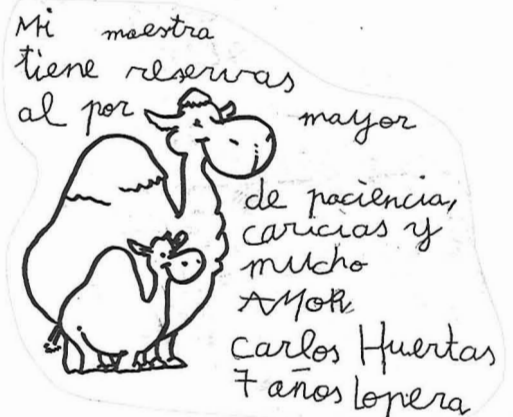 Mi maestra
tiene reservas
al por mayor
de paciencia,
caricias y
mucho
AMOR
Carlos Huertas
7 años lopera